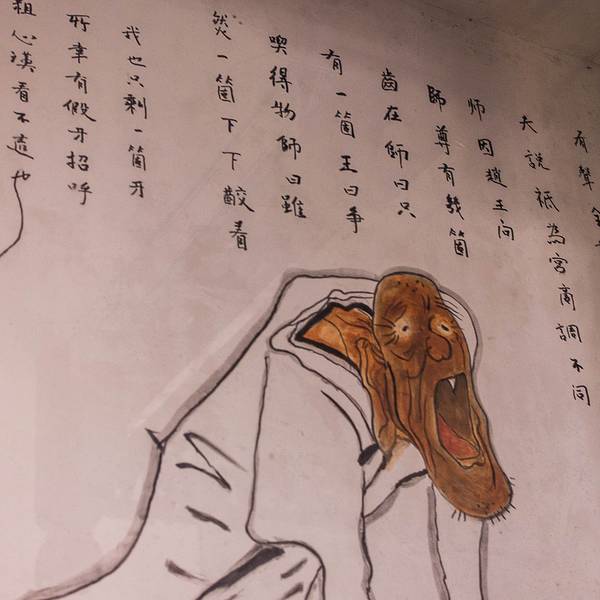 有聲
夫說祇為宮商調不同
师因趙王向
師尊有幾箇
齒在師曰只
有一箇王曰爭
喫得物師曰雖
然一箇下下齩着
我也只剩一箇牙
所幸有假牙招呼
粗心漢看不也